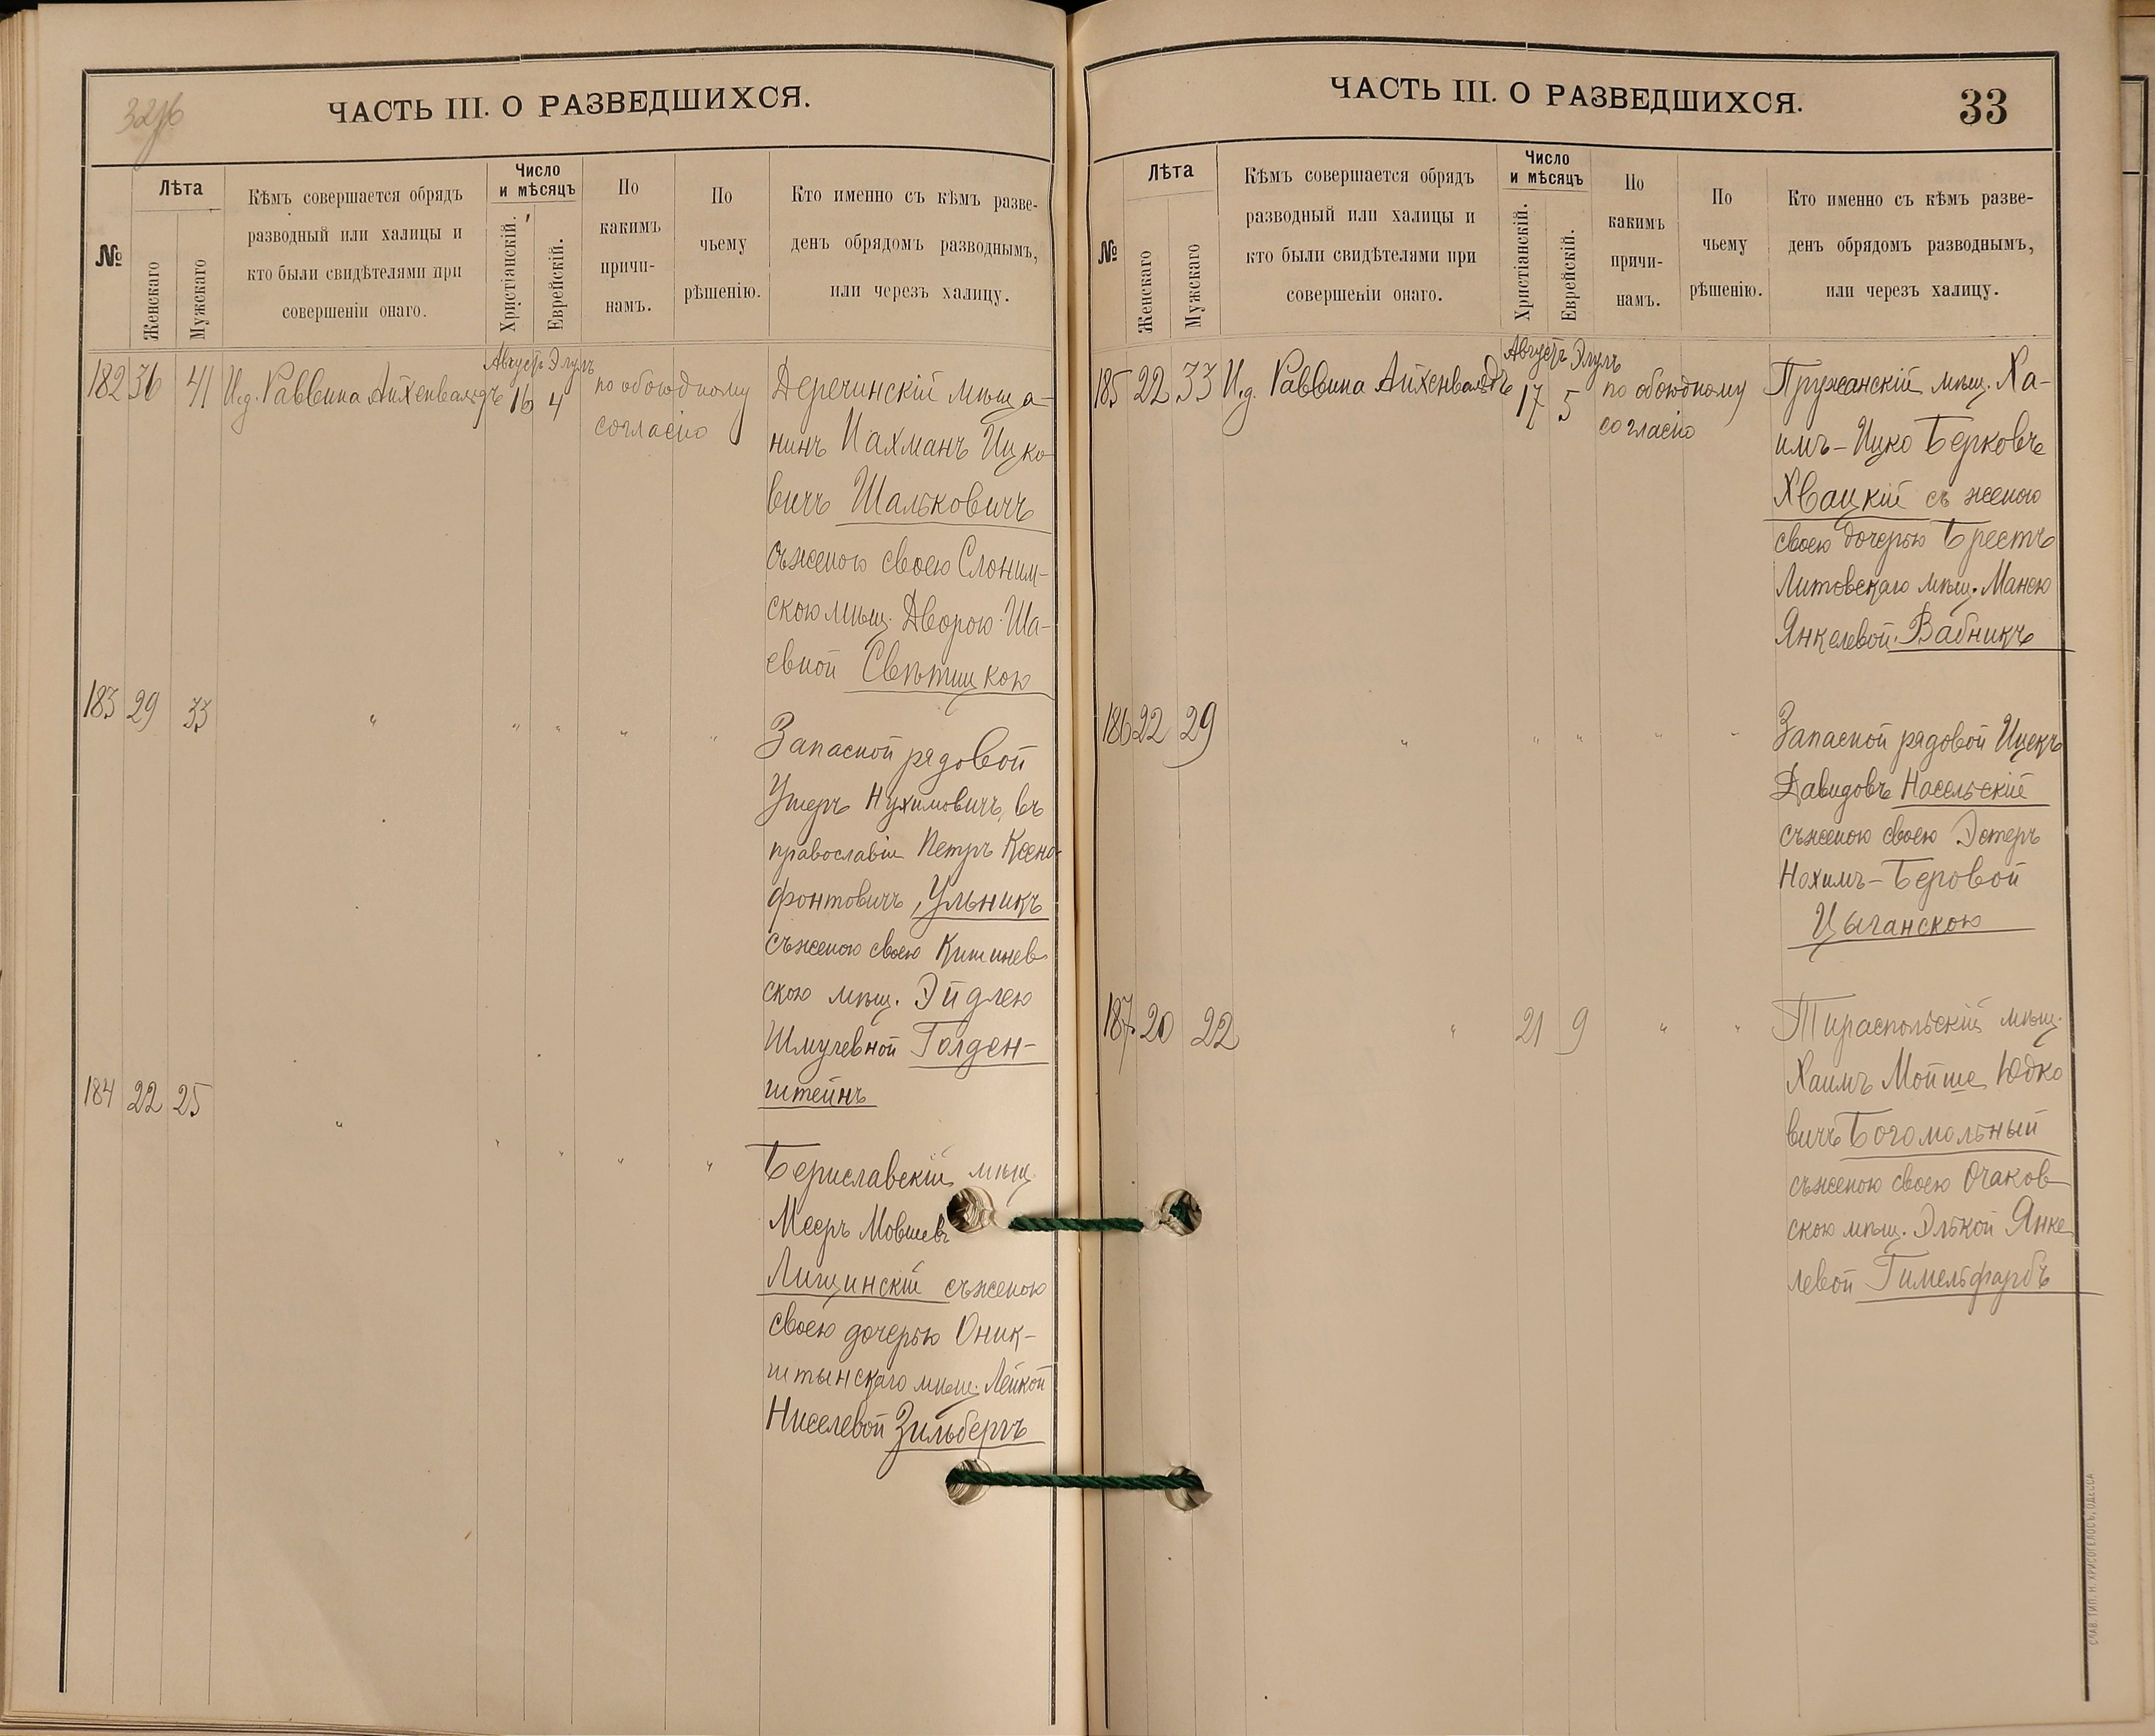 32об
ЧАСТЬ III. О РАЗВЕДШИХСЯ.
№
Лѣта
Женскаго
Мужскаго
Кѣмъ совершается обрядъ
разводный или халицы и
кто были свидѣтелями при
совершеніи онаго.
Число
и мѣсяцъ
Христіанскій.
Еврейскій.
По
какимъ
причи-
намъ.
По
чьему
рѣшенію.
Кто именно съ кѣмъ разве-
денъ обрядомъ разводнымъ,
или черезъ халицу.
Августъ Элулъ
182 36 41 И.д. Раввина Айхенвальдъ 16 4 по обоюдному
согласію
Деречинскій мѣща-
нинъ Нахманъ Ицко
вичъ Шальковичъ
съ женою своею Слоним-
скою мѣщ. Дворою Ша-
евной Свѣтицкою
183 29 33 " " " " "
Запасной рядовой
Ушеръ Нухимовичъ, въ
православіи Петръ Ксено-
фонтовичъ, Ульникъ
съ женою своею Кишинев
скою мѣщ. Эйдлею
Шмулевной Голден-
штейнъ
184 22 25 " " " " "
Бериславскій мѣщ.
Мееръ Мовшевъ
Лищинскій съ женою
своею дочерью Оник-
штынскаго мѣщ. Лейкой
Ниселевой Зильбергъ
ЧАСТЬ III. О РАЗВЕДШИХСЯ.
33
№
Лѣта
Женскаго
Мужскаго
Кѣмъ совершается обрядъ
разводный или халицы и
кто были свидѣтелями при
совершеніи онаго.
Число
и мѣсяцъ
Христіанскій.
Еврейскій.
По
какимъ
причи-
намъ.
По
чьему
рѣшенію.
Кто именно съ кѣмъ разве-
денъ обрядомъ разводнымъ,
или черезъ халицу.
Августъ Элулъ
185 22 33 И.д. Раввина Айхенвальдъ 17 5 по обоюдному
согласію
Пружанскій мѣщ. Ха-
имъ-Ицко Берковъ
Хвацкій съ женою
своею дочерью Брестъ
Литовскаго мѣщ. Манею
Янкелевой Вабникъ
186 22 29 " " " " "
Запасной рядовой Ицекъ
Давидовъ Насельскій
съ женою своею Эстеръ
Нохимъ-Беровой
Цыганскою
187 20 22 " 21 9 " "
Тираспольскій мѣщ.
Хаимъ Мойше Юдко
вичъ Богомольный
съ женою своею Очаков
скою мѣщ. Элькой Янке
левой Гимельфарбъ
СЛАВ. ТИП. Н. ХРИСОГЕЛОСЪ, ОДЕССА